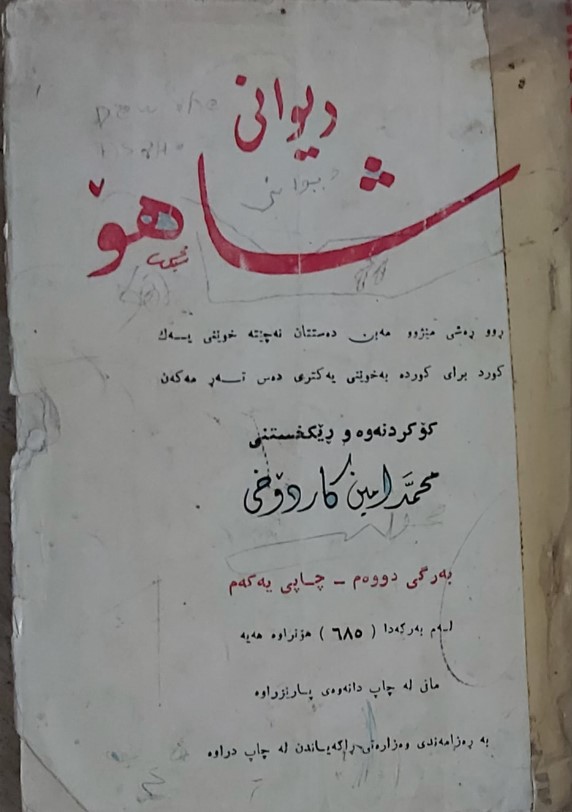 دیوانی
شاهۆ
ڕوو ڕەشی مێژوو مەبن دەستتان نەچێتە خوێنی یـەك
کورد برای کوردە بەخوێنی یەکتری دەس تـەڕ مەکەن
کۆکردنەوە و ڕێکخستنی
محمَّد امین کاردۆخی
بەرگی دووەم – چـاپی یەکەم
لـەم بەرگەدا ( ٦٨٥ ) هۆنراوە هەیە
مافی لە چاپ دانەوەی پـارێزراوە
بە ڕەزامەندی وەزارەتی ڕاگەیـاندن لە چاپ دراوە